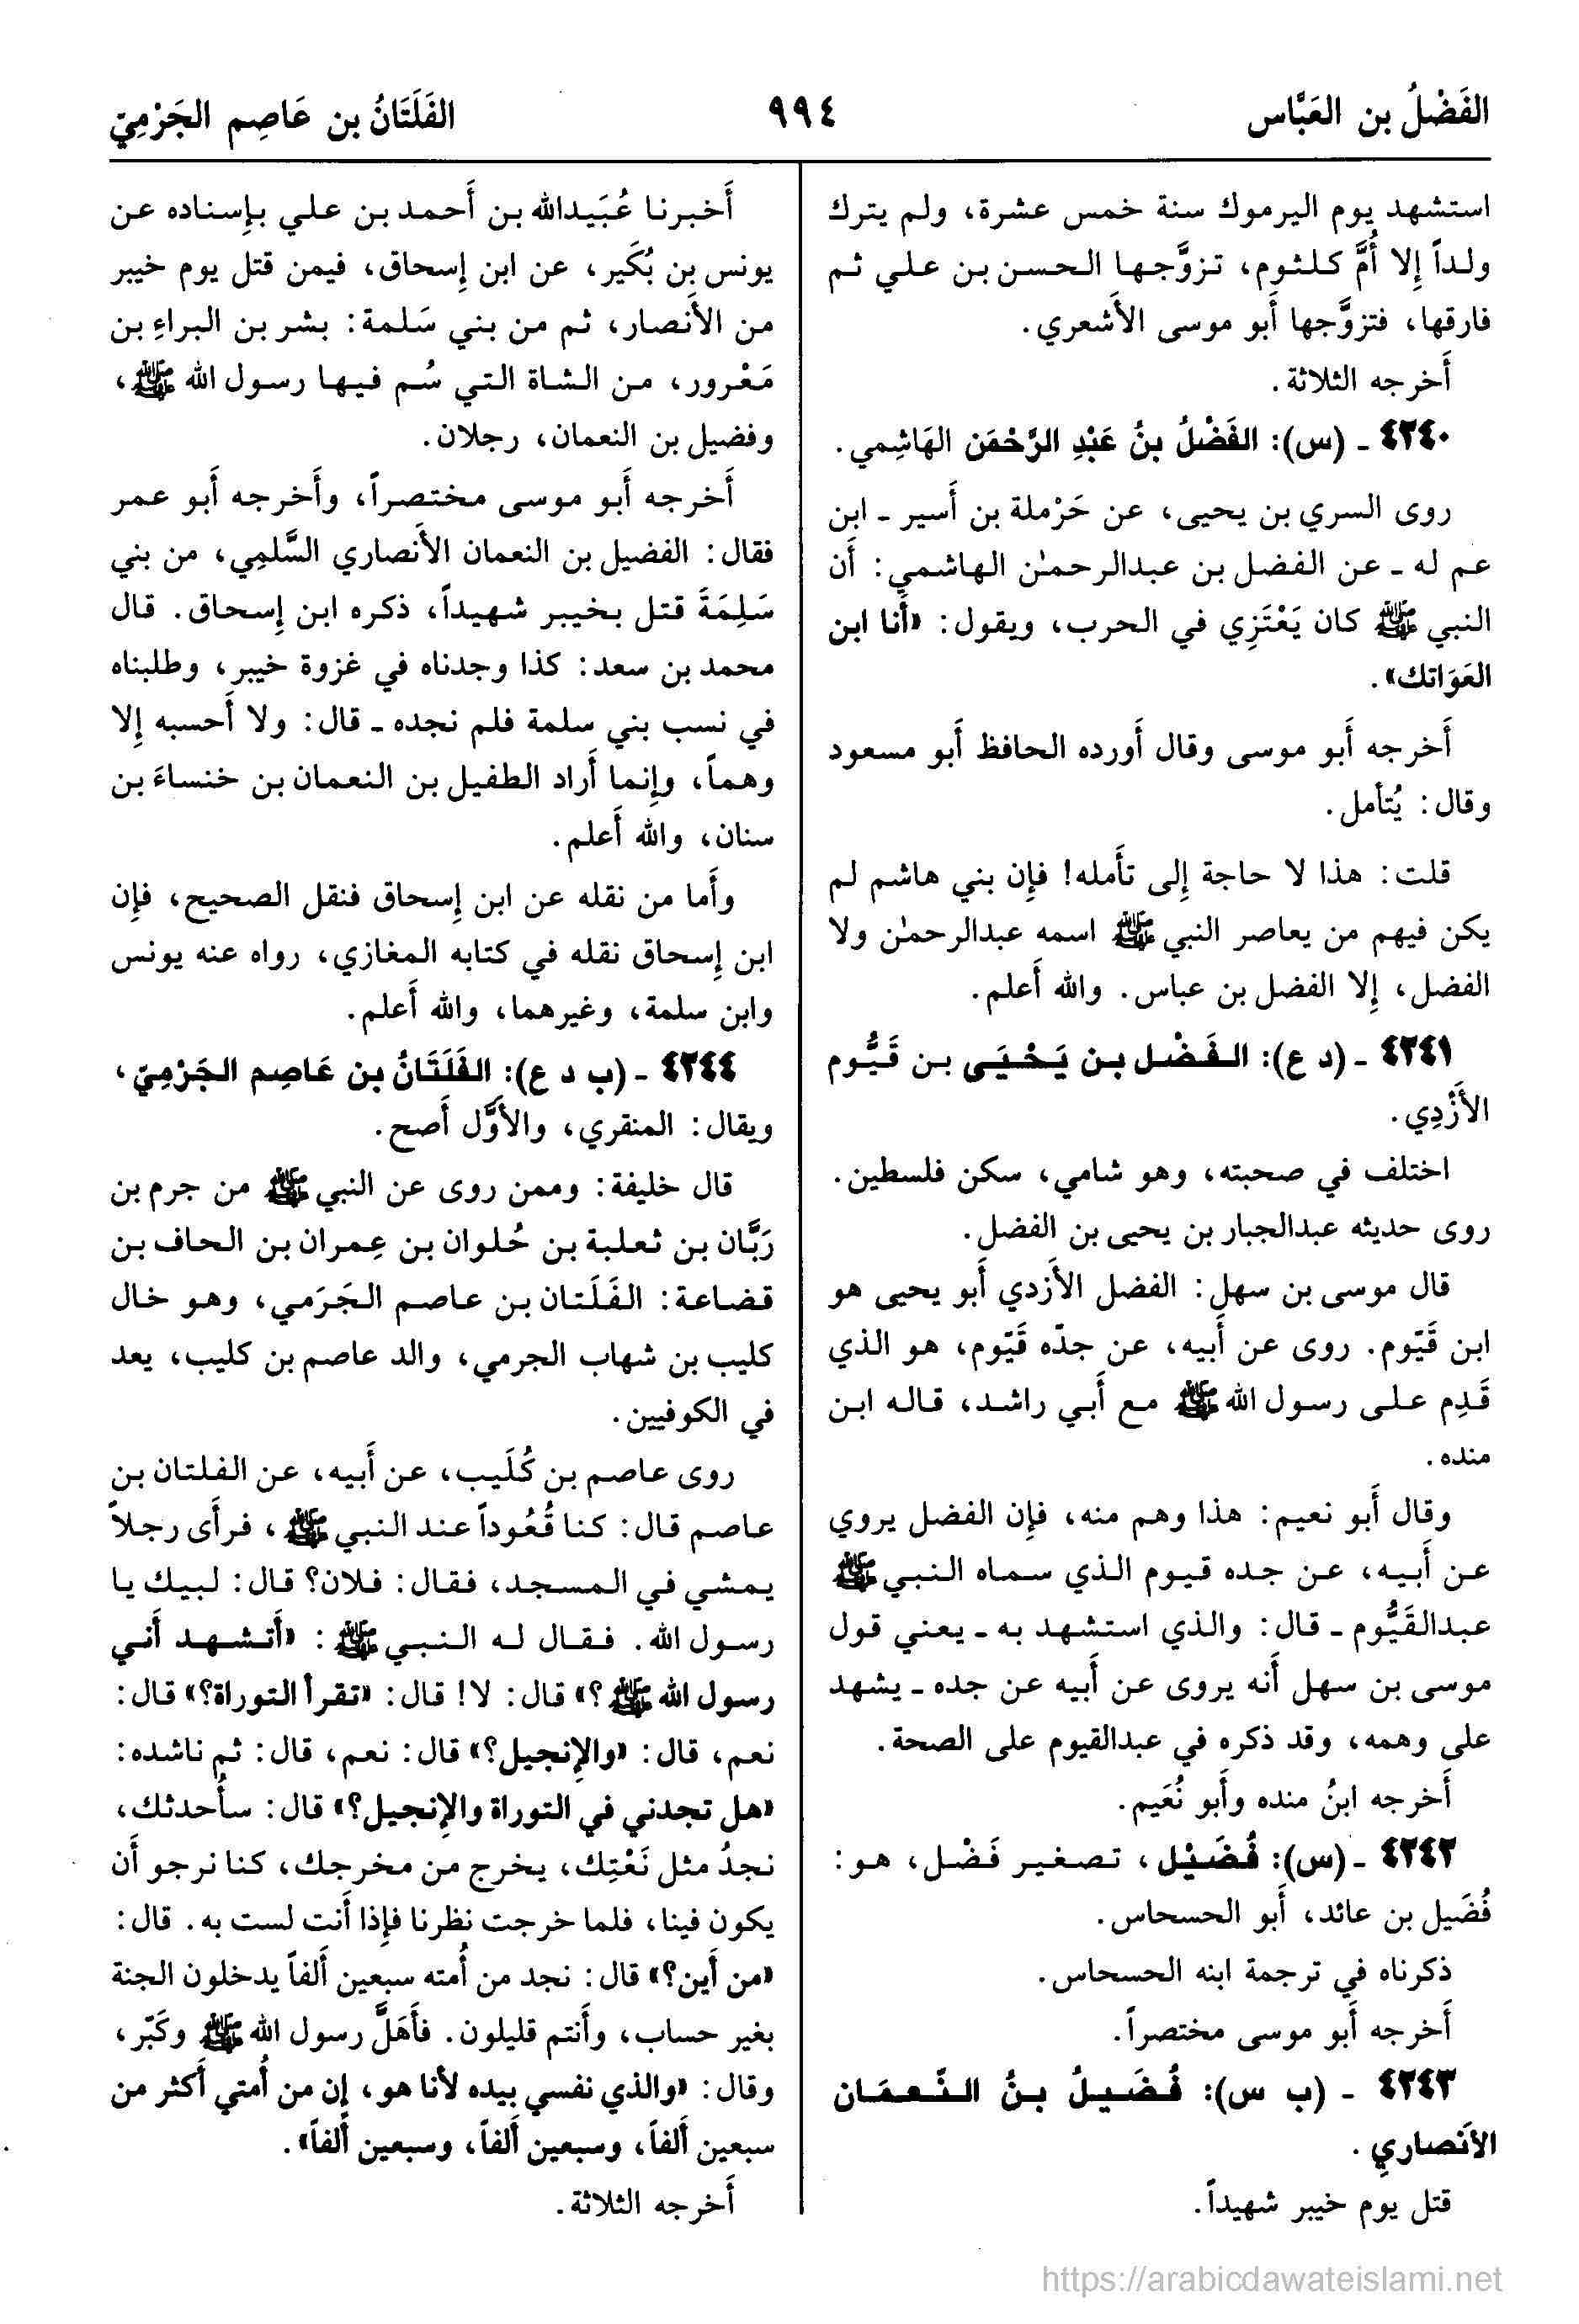 الفَضْلُ بن العَبَّاس
٩٩٤
الفَلَتَانُ بن عَاصِم الجَرْمِيّ
استشهد يوم اليرموك سنة خمس عشرة، ولم يترك
ولداً إِلا أُمَّ كلثوم، تزوَّجها الحسن بن علي ثم
فارقها، فتزوَّجها أَبو موسى الأَشعري.
أَخرجه الثلاثة.
٤٢٤٠ ـ (س): الفَضْلُ بنُ عَبْدِ الرَّحْمَن الهَاشِمي.
روى السري بن يحيى، عن حَرْملة بن أَسير ـ ابن
عم له ـ عن الفضل بن عبدالرحمٰن الهاشمي: أَن
النبي ﷺ كان يَعْتَزِي في الحرب، ويقول: «أَنا ابن
العَوَاتك».
أَخرجه أَبو موسى وقال أَورده الحافظ أَبو مسعود
وقال: يُتأمل.
قلت: هذا لا حاجة إِلى تأَمله! فإِن بني هاشم لم
يكن فيهم من يعاصر النبي ﷺ اسمه عبدالرحمٰن ولا
الفضل، إِلا الفضل بن عباس. والله أَعلم.
٤٢٤١ ـ (د ع): الفَضْل بن يَحْيَى بن قَيُّوم
الأَزْدِي.
اختلف في صحبته، وهو شامي، سكن فلسطين.
روى حديثه عبدالجبار بن يحيى بن الفضل.
قال موسى بن سهل: الفضل الأَزدي أَبو يحيى هو
ابن قَيّوم. روى عن أَبيه، عن جدّه قَيّوم، هو الذي
قَدِم على رسول الله ﷺ مع أَبي راشد، قاله ابن
منده.
وقال أَبو نعيم: هذا وهم منه، فإِن الفضل يروي
عن أَبيه، عن جده قيوم الذي سماه النبي ﷺ
عبدالقَيُّوم ـ قال: والذي استشهد به ـ يعني قول
موسى بن سهل أَنه يروى عن أَبيه عن جده ـ يشهد
على وهمه، وقد ذكره في عبدالقيوم على الصحة.
أَخرجه ابنُ منده وأَبو نُعَيم.
٤٢٤٢ ـ (س): فُضَيْل، تصغير فَضْل، هو:
فُضَيل بن عائد، أَبو الحسحاس.
ذكرناه في ترجمة ابنه الحسحاس.
أَخرجه أَبو موسى مختصراً.
٤٢٤٣ ـ (ب س): فُضَيلُ بنُ النَّعمَان
الأَنصاري.
قتل يوم خيبر شهيداً.
أَخبرنا عُبَيدالله بن أَحمد بن علي بإِسناده عن
يونس بن بُكَير، عن ابن إِسحاق، فيمن قتل يوم خيبر
من الأَنصار، ثم من بني سَلمة: بشر بن البراءِ بن
مَعْرور، من الشاة التي سُم فيها رسول الله ﷺ،
وفضيل بن النعمان، رجلان.
أَخرجه أَبو موسى مختصراً، وأَخرجه أَبو عمر
فقال: الفضيل بن النعمان الأَنصاري السَّلمِي، من بني
سَلِمَةَ قتل بخيبر شهيداً، ذكره ابن إِسحاق. قال
محمد بن سعد: كذا وجدناه في غزوة خيبر، وطلبناه
في نسب بني سلمة فلم نجده ـ قال: ولا أَحسبه إِلا
وهماً، وإِنما أَراد الطفيل بن النعمان بن خنساءَ بن
سنان، والله أَعلم.
وأَما من نقله عن ابن إِسحاق فنقل الصحيح، فإِن
ابن إِسحاق نقله في كتابه المغازي، رواه عنه يونس
وابن سلمة، وغيرهما، والله أَعلم.
٤٢٤٤ ـ (ب د ع): الفَلَتَانُ بن عَاصِم الجَرْمِيّ،
ويقال: المنقري، والأَوَّل أَصح.
قال خليفة: وممن روى عن النبي ﷺ من جرم بن
رَبَّان بن ثعلبة بن حُلوان بن عِمران بن الحاف بن
قضاعة: الفَلَتان بن عاصم الجَرَمي، وهو خال
كليب بن شهاب الجرمي، والد عاصم بن كليب، يعد
في الكوفيين.
روى عاصم بن كُلَيب، عن أَبيه، عن الفلتان بن
عاصم قال: كنا قُعُوداً عند النبي ﷺ، فرأَى رجلاً
يمشي في المسجد، فقال: فلان؟ قال: لبيك يا
رسول الله. فقال له النبي ﷺ: «أَتشهد أَني
رسول الله ﷺ؟» قال: لا! قال: «تقرأ التوراة؟» قال:
نعم، قال: «والإِنجيل؟» قال: نعم، قال: ثم ناشده:
«هل تجدني في التوراة والإِنجيل؟» قال: سأُحدثك،
نجدُ مثل نَعْتِك، يخرج من مخرجك، كنا نرجو أَن
يكون فينا، فلما خرجت نظرنا فإِذا أَنت لست به. قال:
«من أَين؟» قال: نجد من أُمته سبعين أَلفاً يدخلون الجنة
بغير حساب، وأَنتم قليلون. فأَهَلَّ رسول الله ﷺ وكَبّر،
وقال: «والذي نفسي بيده لأنا هو، إِن من أُمتي أَكثر من
سبعين أَلفاً، وسبعين أَلفاً، وسبعين أَلفاً».
أَخرجه الثلاثة.
https://arabicdawateislami.net